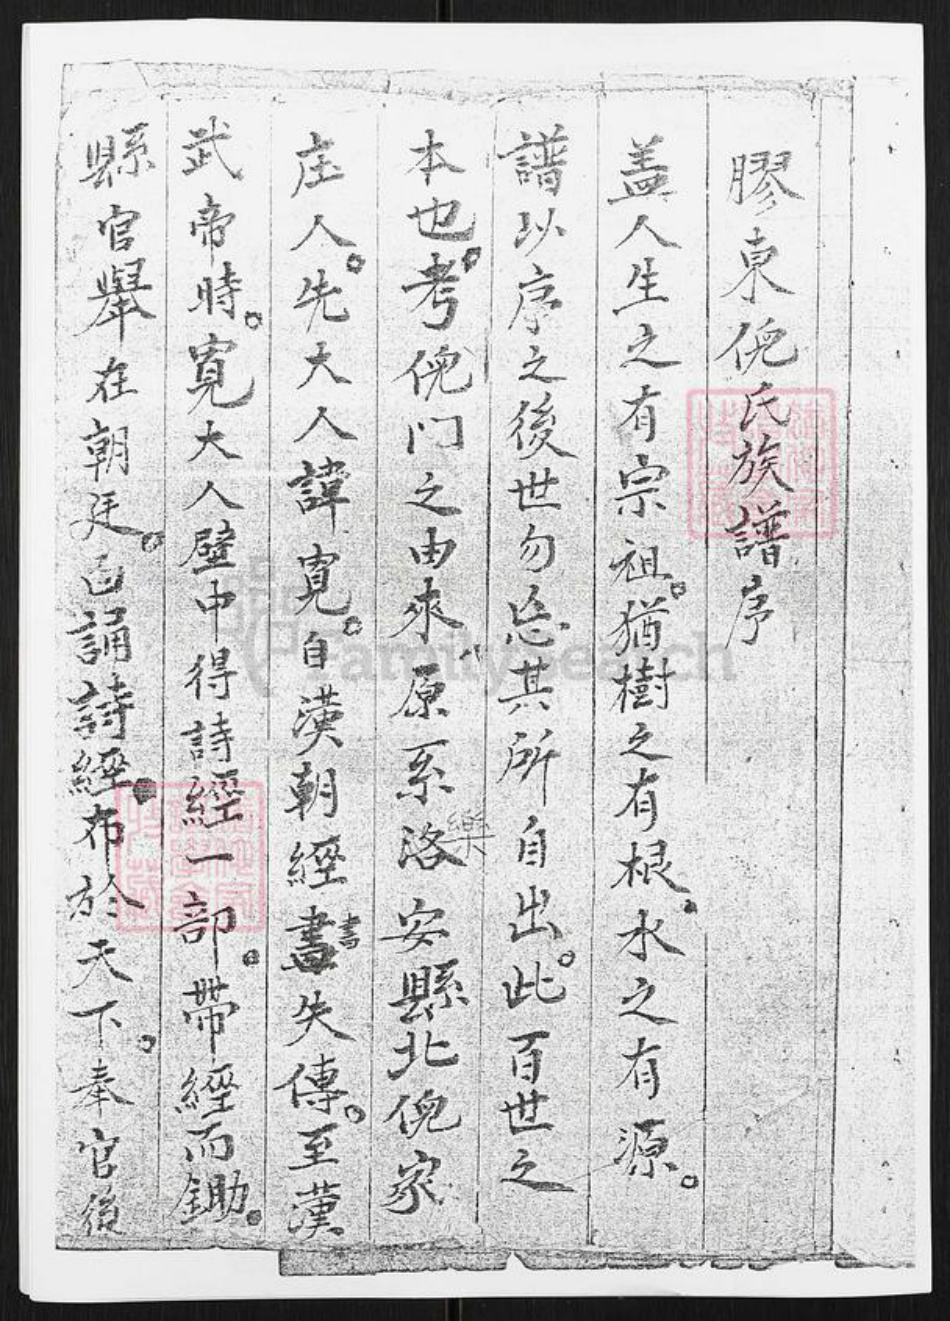 膠東倪氏族譜序
蓋人生之有宗祖。猶樹之有根。水之有源。
譜以序之後世勿忘其所自出。此百世之
本也。考倪門之由來。原系洛安縣北倪家
樂
庄人。先大人諱寬。自漢朝經書失傳。至漢
書
武帝時。寬大人壁中得詩經一部。帶經而鋤。
縣官舉在朝廷。已誦詩經。布於天下。奉官後
FamilySearch